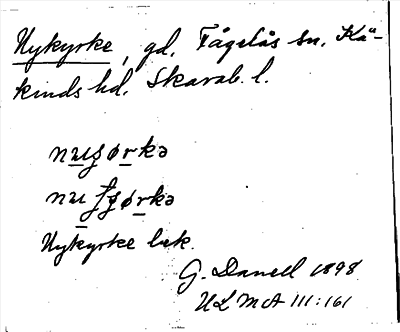 Nykyrke, gd. Fågelås sn. Kå-
kinds hd. Skarab. l.
Nykyrke bek.
G. Danell 1898
ULMA 111:161